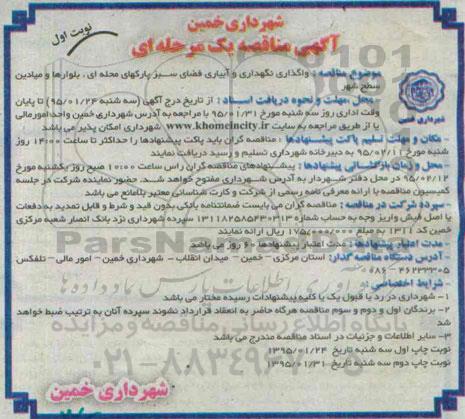 شهرداری خمین
آگهی مناقصه یک مرحله ای
نوبت اول
شهرداری خمین
موضوع مناقصه : واگذاری نگهداری و آبیاری فضای سبز پارکهای محله ای ، بلوارها و میادین
سطح شهر
محل ,مهلت و نحوه دریافت اسناد : از تاریخ درج آگهی (سه شنبه ۹۵/۰۱/۲۴) تا پایان
وقت اداری روز سه شنبه مورخ ۹۵/۰۱/۳۱ با مراجعه به آدرس شهرداری خمین واحد امورمالی
یا از طریق مراجعه به سایت www.khomeincity.ir شهرداری امکان پذیر می باشد
مکان و مهلت تسلیم پاکت پیشنهادها : مناقصه گران باید پاکت پیشنهادها را حداکثر تا ساعت ۱۴:۰۰ روز
شنبه مورخ ۹۵/۰۲/۱۱ به دبیرخانه شهرداری تسلیم و رسید دریافت نمایند
محل و زمان بازگشائی پیشنهادها : پیشنهادهای مناقصه گران راس ساعت ۱۰:۰۰ صبح روز یکشنبه مورخ
۹۵/۰۲/۱۲ در محل دفتر شهردار به آدرس شهرداری مفتوح خواهد شد. حضور نماینده شرکت در جلسه
کمیسیون مناقصه با ارائه معرفی نامه رسمی از شرکت و کارت شناسائی معتبر بلامانع می باشد
سپرده شرکت در مناقصه : مناقصه گران می بایست ضمانتنامه بانکی بدون قید و شرط و قابل تمدید به دفعات
یا اصل فیش واریز وجه به حساب شماره ۱۳۱۱۸۲۵۸۵۴۳۰۳۱۳ سپرده شهرداری نزد بانک انصار شعبه مرکزی
خمین کد ۱۳۱۱ به مبلغ ۱۷۵/۰۰۰/۰۰۰ ریال ارائه نمایند
مدت اعتبار پیشنهادها : مدت اعتبار پیشنهادها ۶۰ روز می باشد
آدرس دستگاه مناقصه گذار: استان مرکزی – خمین – میدان انقلاب – شهرداری خمین – امور مالی – تلفکس
۴۶۲۲۲۳۰۵ – ۰۸۶
شرایط اختصاصی :
۱- شهرداری در رد یا قبول یک یا کلیه پیشنهادات رسیده مختار می باشد
۲- برندگان اول و دوم و سوم مناقصه هرگاه حاضر به انعقاد قرارداد نشوند سپرده آنان به ترتیب ضبط خواهد
شد
۳- سایر اطلاعات و جزئیات در اسناد مناقصه مندرج می باشد
نوبت چاپ اول سه شنبه تاریخ ۱۳۹۵/۰۱/۲۴
نوبت چاپ دوم سه شنبه تاریخ ۱۳۹۵/۰۱/۳۱
شهرداری خمین